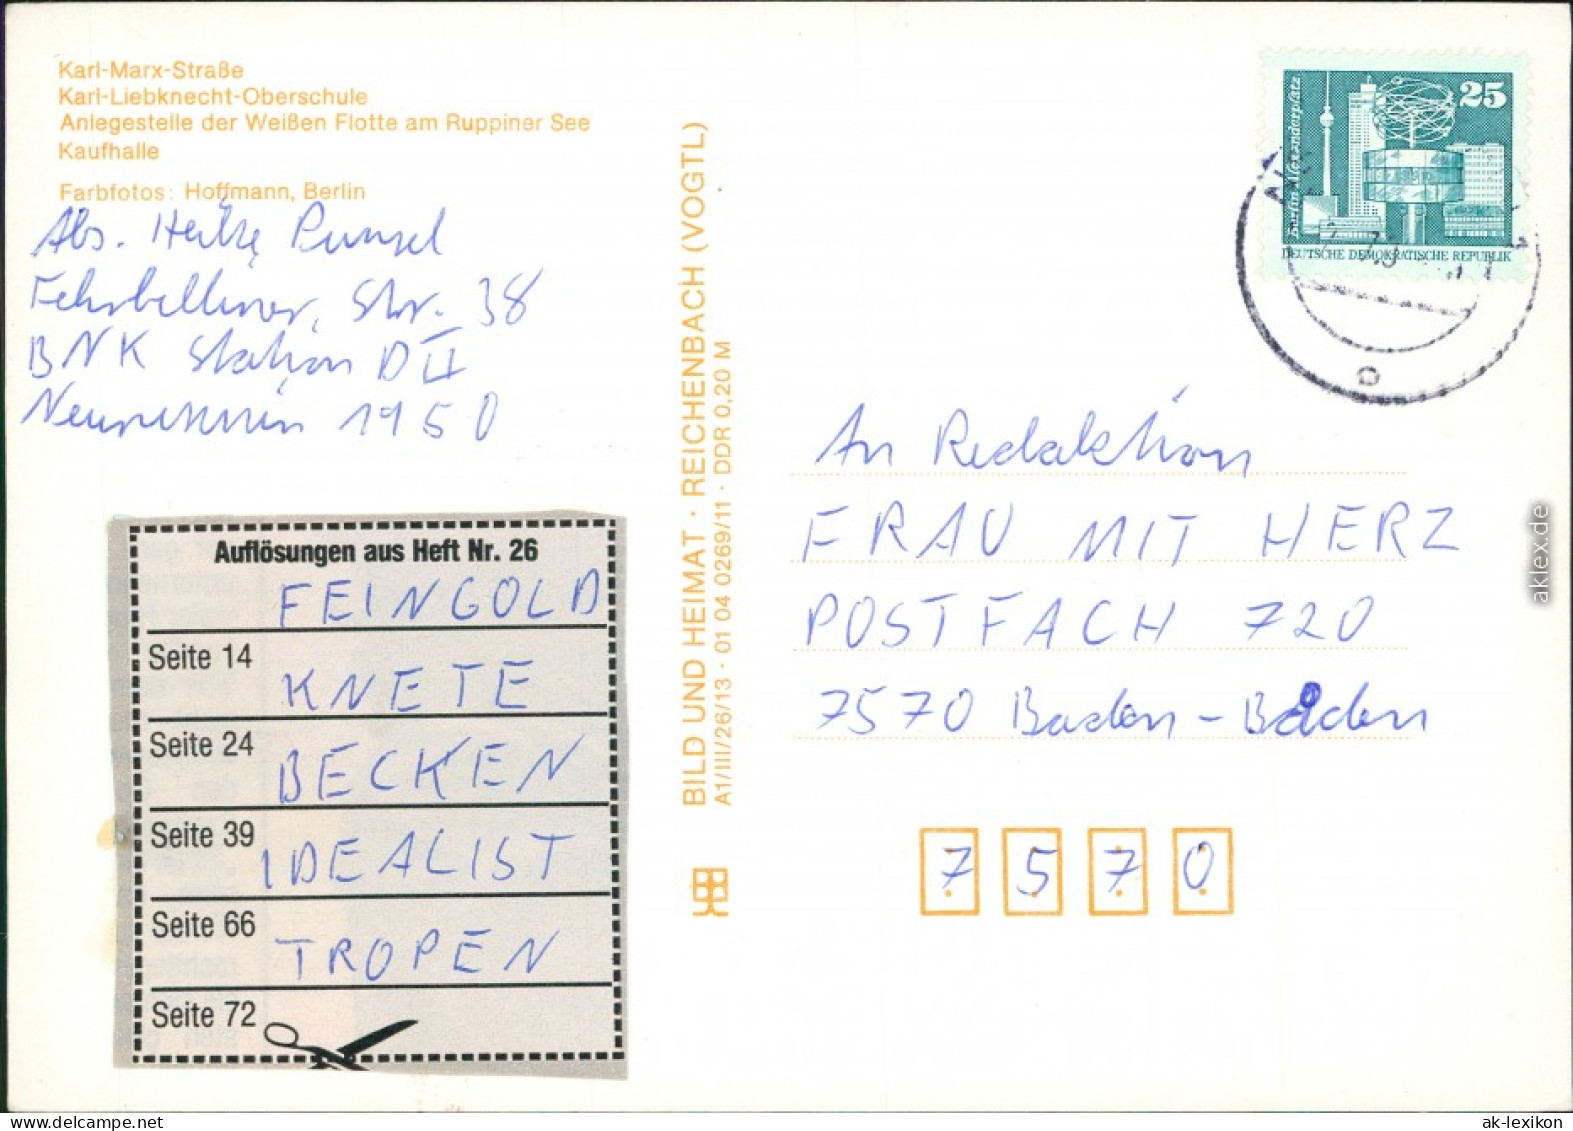 Karl-Marx-Straße
Karl-Liebknecht-Oberschule
Anlegestelle der Weißen Flotte am Ruppiner See
Kaufhalle
Farbfotos: Hoffmann, Berlin
Abs. Heike
Fehrbelliner, Str. 38
BNK Station D II
Neuruppin 1950
Auflösungen aus Heft Nr. 26
FEINGOLD
Seite 14
KNETE
Seite 24
BECKEN
Seite 39
IDEALIST
Seite 66
TROPEN
Seite 72
BILD UND HEIMAT · REICHENBACH (VOGTL)
A1/III/26/13 · 01 04 0269/11 · DDR 0,20 M
25
Berlin-Alexanderplatz
DEUTSCHE DEMOKRATISCHE REPUBLIK
An Redaktion
FRAU MIT HERZ
POSTFACH 720
7570 Baden-Baden
7 5 7 0
aklex.de
delcampe.net
ak-lexikon